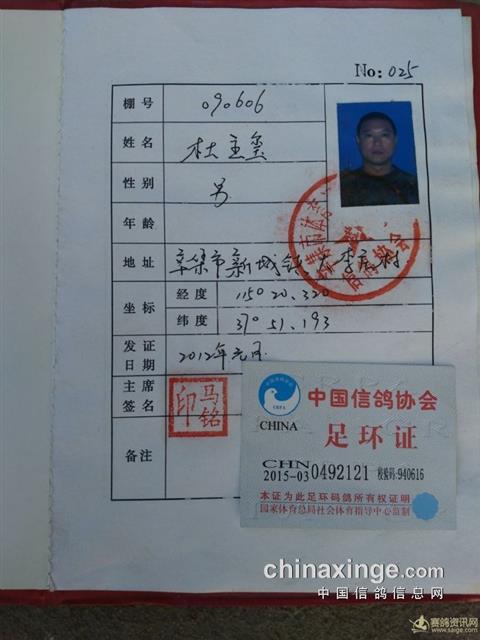 No: 025
棚号 090606
姓名 杜主玺
性别 男
年龄
地址 辛集市新城镇大李庄村
坐标 经度 115° 20.320
纬度 37° 51.193
发证日期 2012年元月
主席签名 马铭印
备注
中国信鸽协会
CHINA 足环证
CHN
2015-03 0492121 校验码:940616
本证为此足环码鸽所有权证明
国家体育总局社会体育指导中心监制
chinaxinge.com
中国信鸽信息网
赛鸽资讯网
www.saige.com